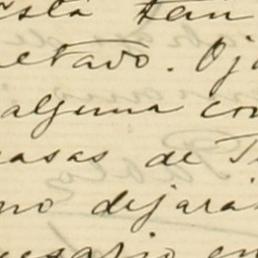 está tan
etado. Oj
alguna con
casas de T
no dejará
cesario en